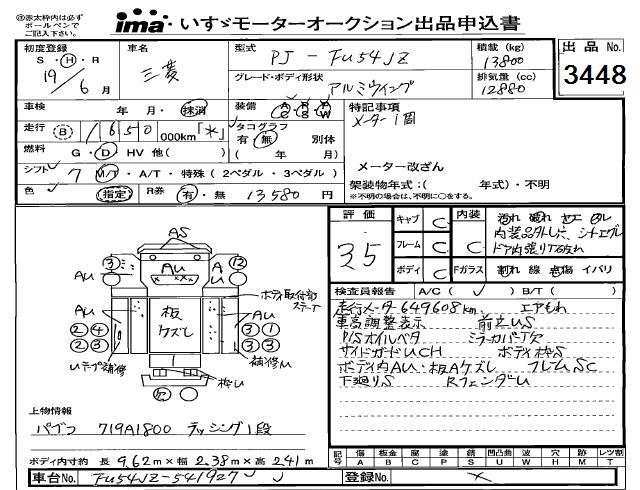 ※赤太枠内は必ず
ボールペンで
ご記入下さい。
ima いすゞモーターオークション出品申込書
初度登録 車名 型式 PJ - FU54JZ 積載 (kg) 出品 No.
S・H・R 三菱 13800
19/6 月 グレード・ボディ形状 アルミウイング 排気量 (cc) 3448
12880
車検 年 月・抹消 装備 A/C P/S P/W 特記事項
走行 B 1650 000km「*」 タコグラフ メーター1個
有・無 別体
燃料 G・D・HV 他( ) ( 年 月) メーター改ざん
シフト 7 M/T・A/T・特殊(2ペダル・3ペダル)
色 指定 R券 有・無 13580 円 架装物年式:( 年式)・不明
※不明の場合は、不明に○をする。
評価 キャブ C 内装
35 フレーム C C
ボディ C Fガラス 割れ 線 点傷 イバリ
検査員報告 A/C( ) B/T( )
走行メーター649608km エアもれ
車高調整表示 前立US
P/Sオイルベタ ミラーカバー欠
サイドガードUCH ボディ枠S
ボディ内AU・板Aケズレ フレームSC
下廻りS RフェンダーU
AS
AU ③ AU ⑫ AU
ボディ取付部ステー
AU ②④ 板ケズレ ③① AU
②③ ③③
Uテープ補修 補修U
板U
欠
上物情報
パブコ 719A1800 ラッシング1段
ボディ内寸約 長 9.62m×幅 2.38m×高 2.41m
記号 傷 板金 腐 塗 錆 凹凸曲 凹 穴 跡 レンツ割
A B C P S U W H M T
車台No. FU54JZ-541927 登録No. ×